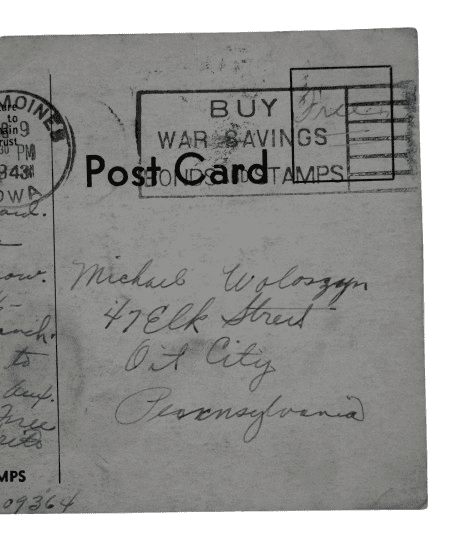 MOINES
to
9
30 PM
1943
IOWA
BUY
WAR SAVINGS
BONDS STAMPS
Free
Post Card
Michael Woloszyn
47 Elk Street
Oil City
Pennsylvania
to
Free
MPS
09364